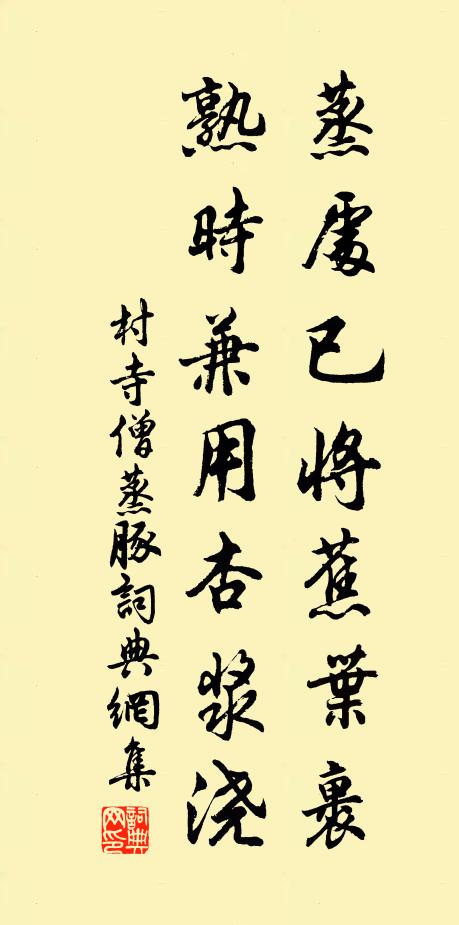 蒸處已將蕉葉裹
熟時兼用杏漿浇
村寺僧蒸豚詞典網集
詞典网印